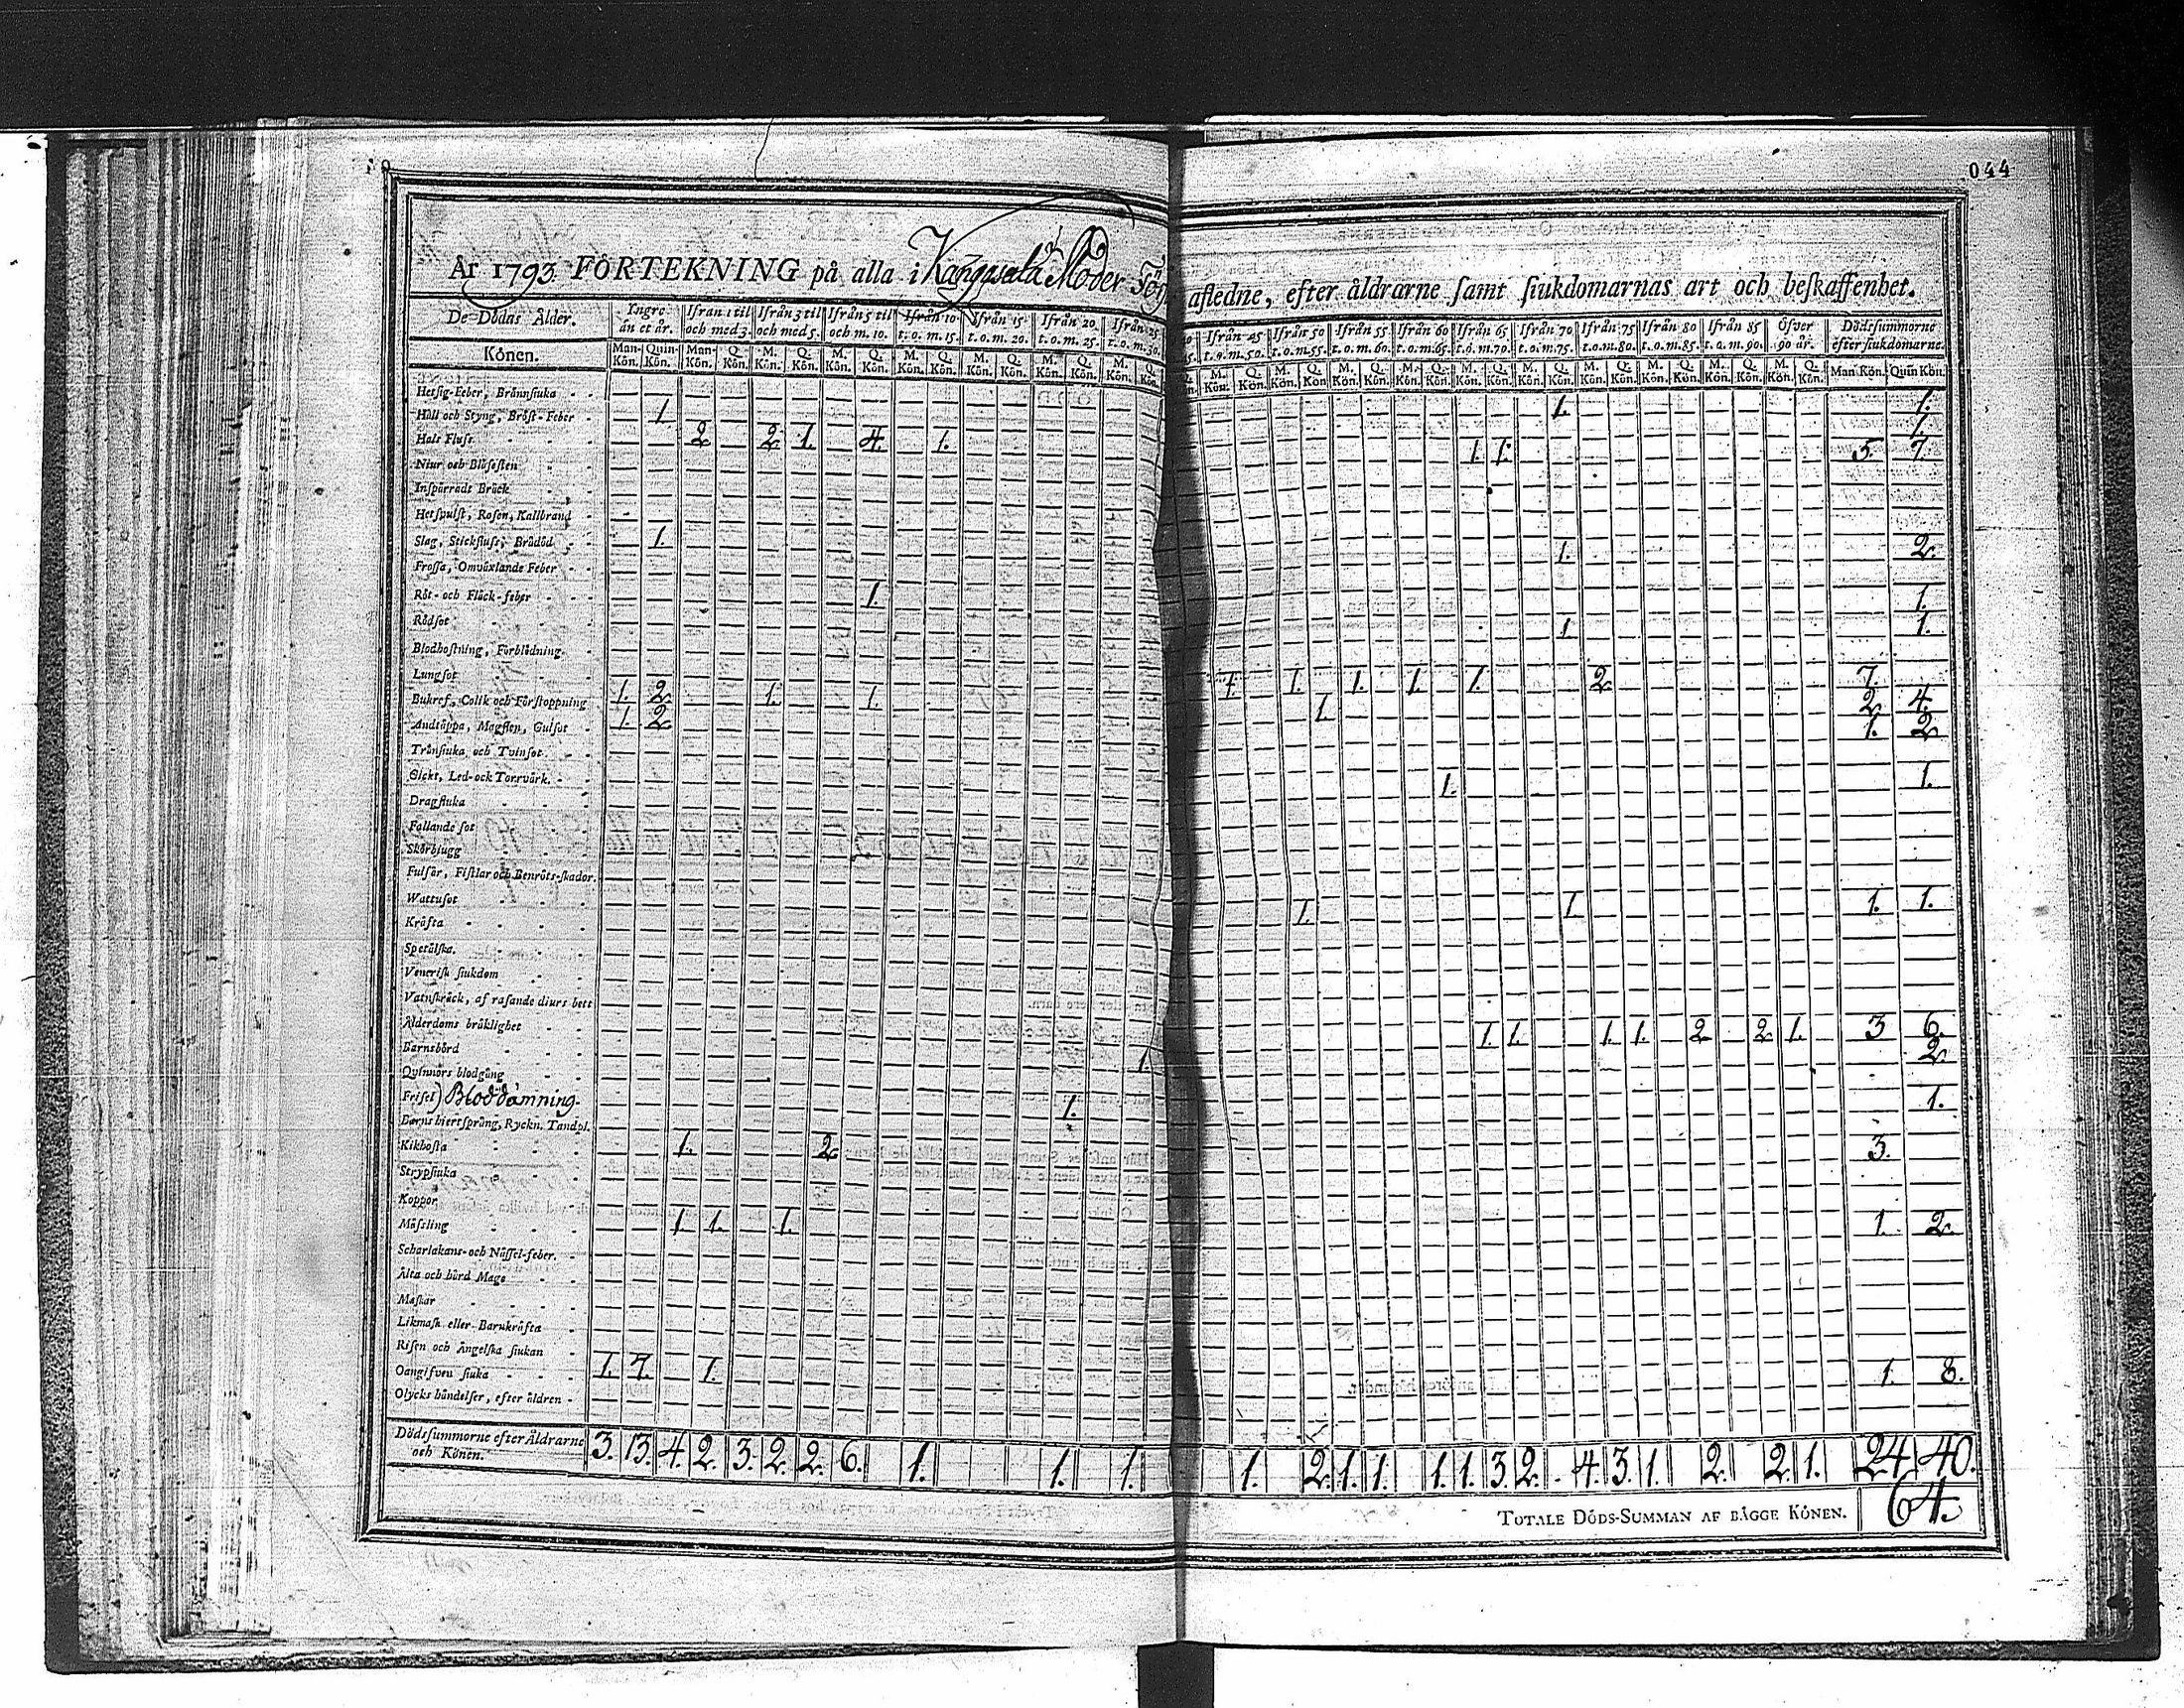 044
År 1793. FÖRTEKNING på alla i Kangasala Moder afledne, efter åldrarne samt siukdomarnas art och beskaffenhet.
De Dödas Ålder. Yngre än et år. Ifrån 1 til och med 3. Ifrån 3 til och med 5. Ifrån 5 til och m. 10. Ifrån 10 t. o. m. 15. Ifrån 15 t. o. m. 20. Ifrån 20 t. o. m. 25. Ifrån 25 t. o. m. 30. Ifrån 45 t. o. m. 50. Ifrån 50 t. o. m. 55. Ifrån 55 t. o. m. 60. Ifrån 60 t. o. m. 65. Ifrån 65 t. o. m. 70. Ifrån 70 t. o. m. 75. Ifrån 75 t. o. m. 80. Ifrån 80 t. o. m. 85. Ifrån 85 t. o. m. 90. Öfver 90 år. Dödssummorne efter siukdomarne.
Könen. Man-Kön. Quin-Kön. Man-Kön. Q. Kön. M. Kön. Q. Kön. M. Kön. Q. Kön. M. Kön. Q. Kön. M. Kön. Q. Kön. M. Kön. Q. Kön. M. Kön. Q. Kön. M. Kön. Q. Kön. M. Kön. Q. Kön. M. Kön. Q. Kön. M. Kön. Q. Kön. M. Kön. Q. Kön. M. Kön. Q. Kön. M. Kön. Q. Kön. M. Kön. Q. Kön. M. Kön. Q. Kön. M. Kön. Q. Kön. Man Kön. Quin Kön.
Hetsig-Feber, Brännsiuka 1. 1.
Håll och Styng, Bröst-Feber 1. 1.
Hals Fluss 2 2 1. 4. 1. 1 1. 5. 7.
Niur och Blåsesten
Inspärradt Bråck
Hetspulst, Rosen, Kallbrand
Slag, Stickfluss, Brådöd 1. 1. 2.
Frossa, Omväxlande Feber
Röt- och Fläck-feber 1. 1.
Rödsot 1. 1.
Blodhostning, Förblödning
Lungsot 1. 1. 1. 1. 1. 2 7.
Bukref, Colik och Förstoppning 1. 2 1. 1. 1. 2 4.
Andtäppa, Magsten, Gulsot 1. 2 1. 2
Trånsiuka och Tvinsot
Gickt, Led-och Torrvärk. 1. 1.
Dragsiuka
Fallande sot
Skörbjugg
Fulsår, Fistlar och Benröts-skador.
Wattusot 1. 1. 1. 1.
Kräfta
Spetälska.
Venerisk siukdom
Vatnskräck, af rasande diurs bett
Ålderdoms bräklighet 1. 1. 1. 1. 2 2 1. 3 6.
Barnsbörd 1. 2
Qvinnors blodgång
Frisel) Bloddämning. 1. 1.
Barns hiertsprång, Ryckn. Tandpl.
Kikhosta 1. 2 3.
Strypsiuka
Koppor
Mässling 1. 1. 1. 1. 2.
Scharlakans-och Nässel-feber.
Älta och hård Mage
Maskar
Likmask eller Barnkräfta
Risen och Ängelska siukan
Oangifven siuka 1. 7. 1. 1. 8.
Olycks händelser, efter äldren
Dödssummorne efter Åldrarne och Könen. 3. 13. 4. 2. 3. 2. 2. 6. 1. 1. 1. 1. 2. 1. 1. 1. 1. 3. 2. 4. 3. 1. 2. 2. 1. 24 40.
TOTALE DÖDS-SUMMAN AF BÄGGE KÖNEN. 64.